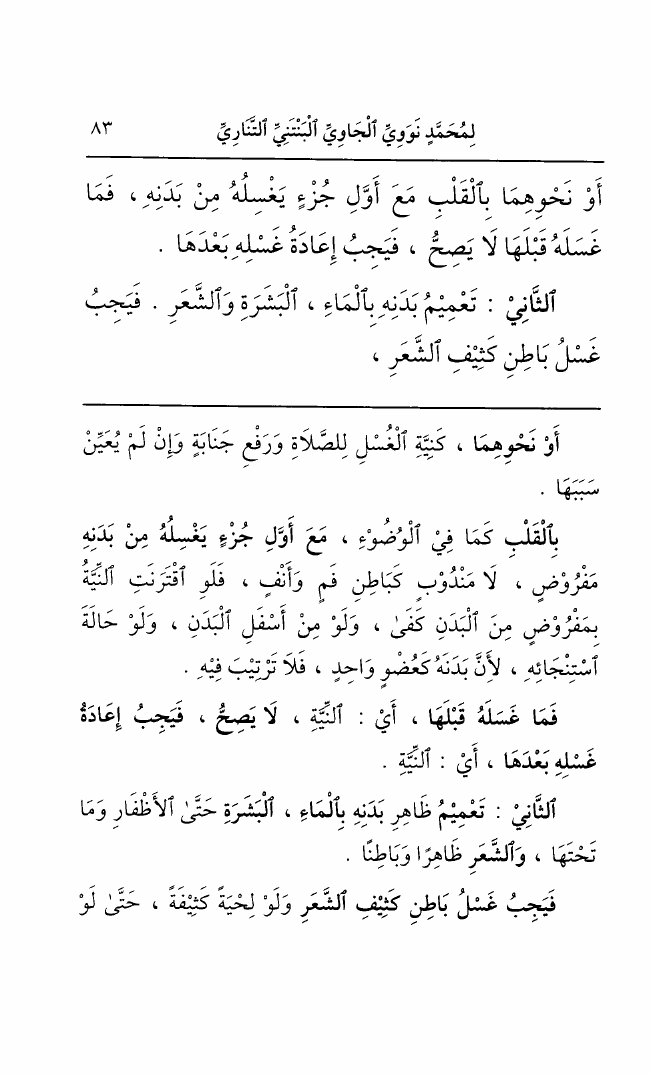 لِمُحَمَّدٍ نَوَوِيِّ ٱلْجَاوِيِّ ٱلْبَنْتَنِيِّ ٱلتَّنَارِيِّ ٨٣
أَوْ نَحْوِهِمَا بِٱلْقَلْبِ مَعَ أَوَّلِ جُزْءٍ يَغْسِلُهُ مِنْ بَدَنِهِ ، فَمَا
غَسَلَهُ قَبْلَهَا لَا يَصِحُّ ، فَيَجِبُ إِعَادَةُ غَسْلِهِ بَعْدَهَا .
ٱلثَّانِيْ : تَعْمِيْمُ بَدَنِهِ بِٱلْمَاءِ ، ٱلْبَشَرَةِ وَٱلشَّعَرِ . فَيَجِبُ
غَسْلُ بَاطِنِ كَثِيْفِ ٱلشَّعَرِ ،
أَوْ نَحْوِهِمَا ، كَنِيَّةِ ٱلْغُسْلِ لِلصَّلَاةِ وَرَفْعِ جَنَابَةٍ وَإِنْ لَمْ يُعَيِّنْ
سَبَبَهَا .
بِٱلْقَلْبِ كَمَا فِيْ ٱلْوُضُوْءِ ، مَعَ أَوَّلِ جُزْءٍ يَغْسِلُهُ مِنْ بَدَنِهِ
مَفْرُوْضٍ ، لَا مَنْدُوْبٍ كَبَاطِنِ فَمٍ وَأَنْفٍ ، فَلَوِ ٱقْتَرَنَتِ ٱلنِّيَّةُ
بِمَفْرُوْضٍ مِنَ ٱلْبَدَنِ كَفَىٰ ، وَلَوْ مِنْ أَسْفَلِ ٱلْبَدَنِ ، وَلَوْ حَالَةَ
ٱسْتِنْجَائِهِ ، لأَنَّ بَدَنَهُ كَعُضْوٍ وَاحِدٍ ، فَلَا تَرْتِيْبَ فِيْهِ .
فَمَا غَسَلَهُ قَبْلَهَا ، أَيْ : ٱلنِّيَّةِ ، لَا يَصِحُّ ، فَيَجِبُ إِعَادَةُ
غَسْلِهِ بَعْدَهَا ، أَيْ : ٱلنِّيَّةِ .
ٱلثَّانِيْ : تَعْمِيْمُ ظَاهِرِ بَدَنِهِ بِٱلْمَاءِ ، ٱلْبَشَرَةِ حَتَّىٰ ٱلأَظْفَارِ وَمَا
تَحْتَهَا ، وَٱلشَّعَرِ ظَاهِرًا وَبَاطِنًا .
فَيَجِبُ غَسْلُ بَاطِنِ كَثِيْفِ ٱلشَّعَرِ وَلَوْ لِحْيَةً كَثِيْفَةً ، حَتَّىٰ لَوْ